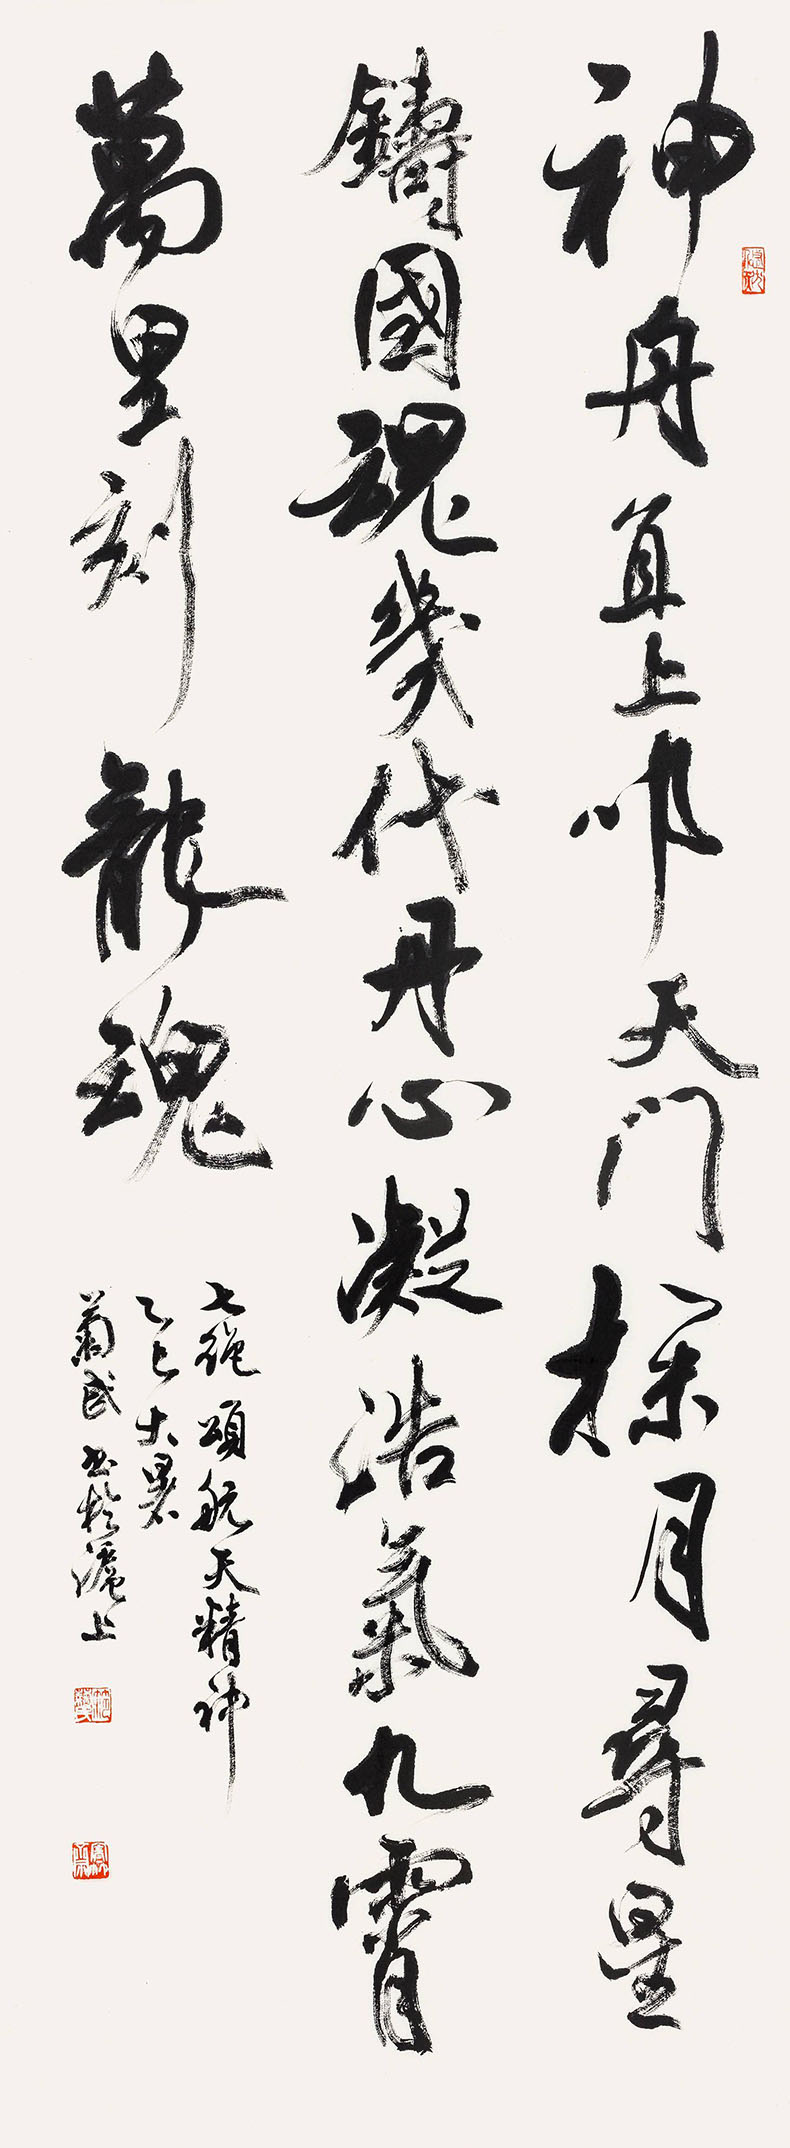 神舟直上叩天門探月尋星
鑄國魂幾代丹心凝浩氣九霄
萬里刻龍魂
七绝頌航天精神
乙巳大暑
菊民书於滬上